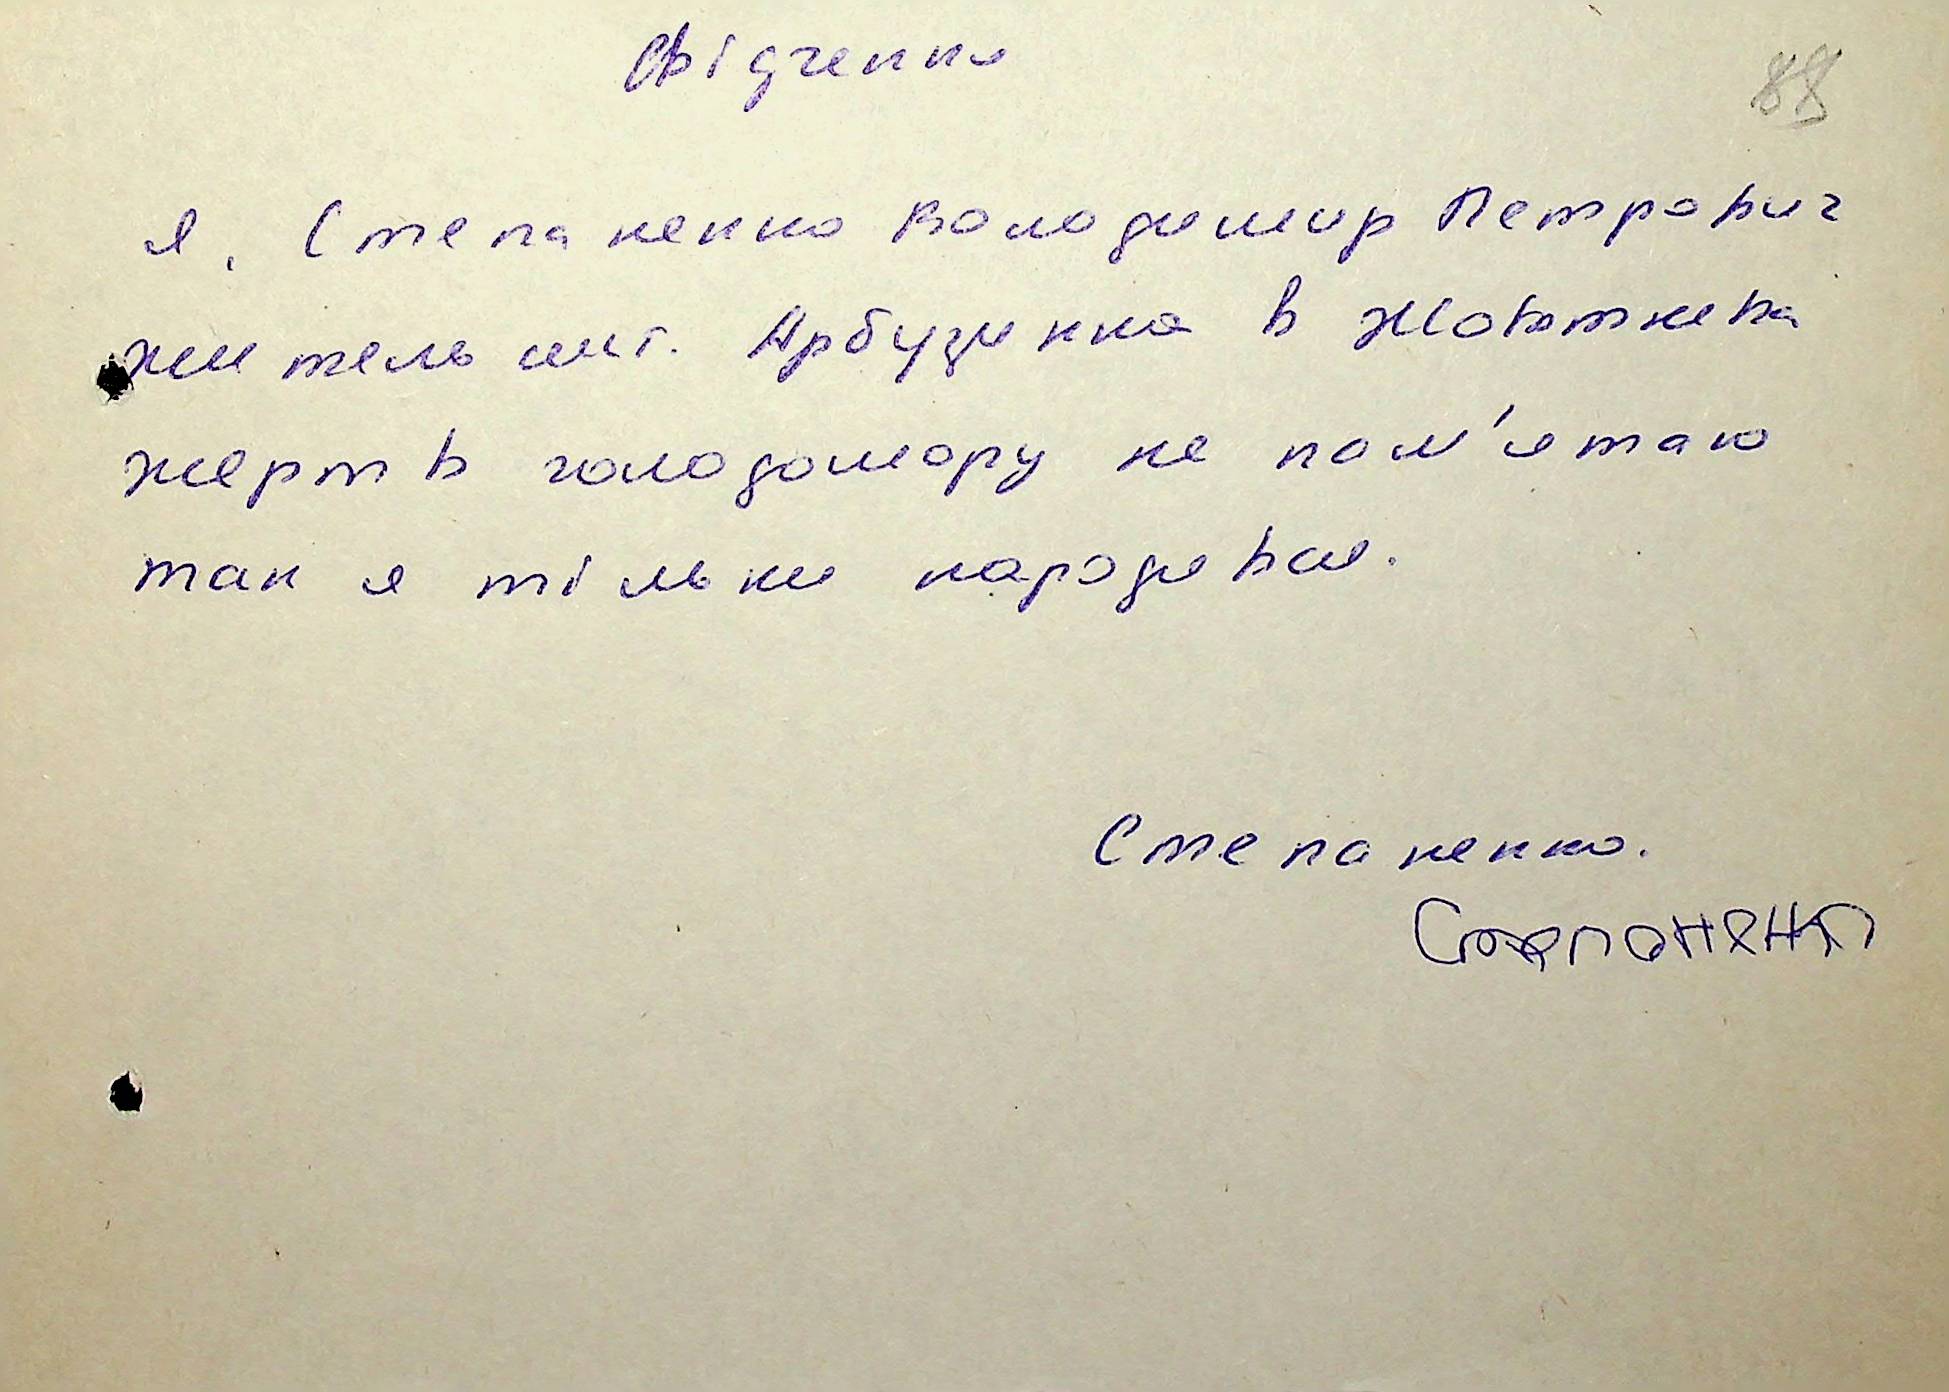 Свідчення
88
Я, Степаненко Володимир Петрович
житель смт. Арбузинка в Жовтнева
жертв голодомору не пам'ятаю
так я тільки народився.
Степаненко.
Степаненко